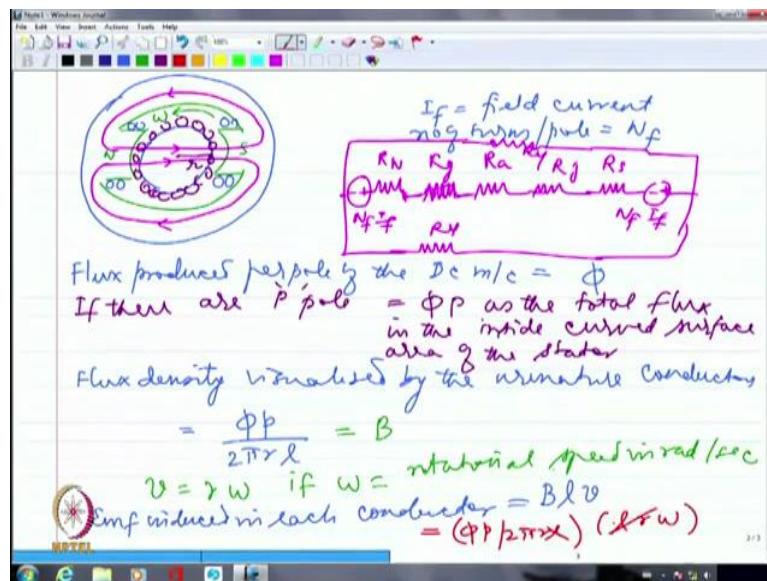 Note1 - Windows Journal
File Edit View Insert Actions Tools Help
I_f = field current
no of turns/pole = N_f
N ω S
r
R_y
R_N R_g R_a R_g R_s
N_f I_f N_f I_f
R_y
Flux produced per pole by the DC m/c = Φ
If there are 'P' pole = ΦP as the total flux
in the inside curved surface
area of the stator
Flux density visualised by the armature conductors
= ΦP / 2πrl = B
v = rω if ω = rotational speed in rad/sec
Emf induced in each conductor = Blv
= (ΦP/2πrl) (lrω)
NPTEL
2/3